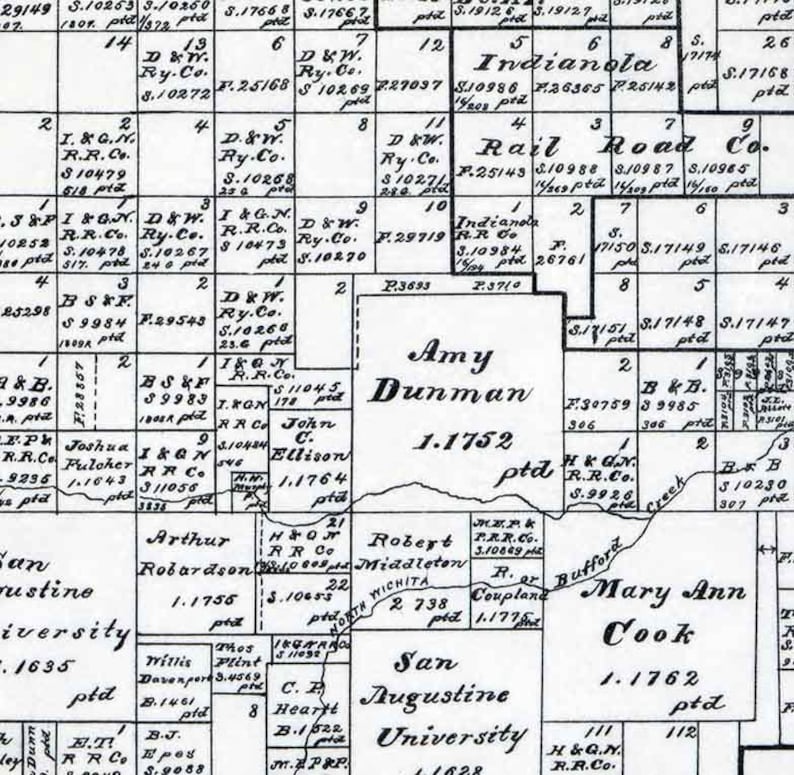 29149
S.10253
ptd
S.10250
1/372
ptd
S.17668
ptd
S.17667
ptd
ptd
S.19126
ptd
S.19127
ptd
14
13
D & W.
Ry. Co.
S.10272
6
F.25168
7
D & W.
Ry. Co.
S 10269
ptd
12
F.27037
5
6
8
Indianola
S.10986
16/208 ptd
F.26365
F.25142
S.
17174
ptd
26
S.17168
ptd
2
2
I. & G.N.
R.R. Co.
S 10479
518 ptd
4
5
D. & W.
Ry. Co.
S.10268
25 G ptd
8
11
D & W.
Ry. Co.
S 10271
28 G. ptd
4
3
7
9
Rail Road Co.
F.25143
S.10988
16/269 ptd
S.10987
16/209 ptd
S.10985
16/160 ptd
1
. S & F
10252
ptd
1
I & G.N.
R.R. Co.
S.10478
517. ptd
3
D & W.
Ry. Co.
S.10267
24 G ptd
4
I & G.N.
R.R. Co.
S 10473
ptd
9
D & W.
Ry. Co.
S.10270
10
F.29719
1
Indianola
R R Co
S.10984
16/194 ptd
2
F.
26761
7
S.
17150
ptd
6
S.17149
ptd
3
S.17146
ptd
4
25298
3
B S & F.
S 9984
ptd
2
F.29543
1
D & W.
Ry. Co.
S.10266
23.G ptd
2
F.3693
F.3710
S.17151
8
ptd
5
S.17148
ptd
4
S.17147
ptd
Amy
Dunman
1.1752
ptd
1
& B.
9986
ptd
F.28357
2
1
B S & F
S 9983
ptd
I & G N
R.R. Co.
S 11045
178 ptd
I. & G N
R R Co
S.10484
546
2
F.30759
306
1
B & B.
S 9985
306 ptd
E.P &
R.R. Co.
9235
ptd
Joshua
Fulcher
1.1643
ptd
9
I & G N
R R Co
S 11056
3836 ptd
John
C.
Ellison
1.1764
ptd
1
H & G.N.
R.R. Co.
S.9926
ptd
2
3
B & B
S 10230
307 ptd
San
Augustine
University
1.1635
ptd
Arthur
Robardson
1.1755
ptd
21
H & G N
R R Co
ptd
22
S.10653
ptd
Robert
Middleton
2 738
ptd
M.E.P. &
P.R.R. Co.
S.10869 ptd
R. or
Coupland
1.1775
ptd
NORTH WICHITA
Bufford Creek
Mary Ann
Cook
1.1762
ptd
Willis
Davenport
B.1461
ptd
Thos
Flint
S.4569
ptd
I & G N R R Co
S 11092
8
C. P.
Heartt
B.1522
ptd
San
Augustine
University
1.1628
E.T.
R R Co
1
B.J.
Epes
S.9088
M.E P & P.
111
H & G.N.
R.R. Co.
112